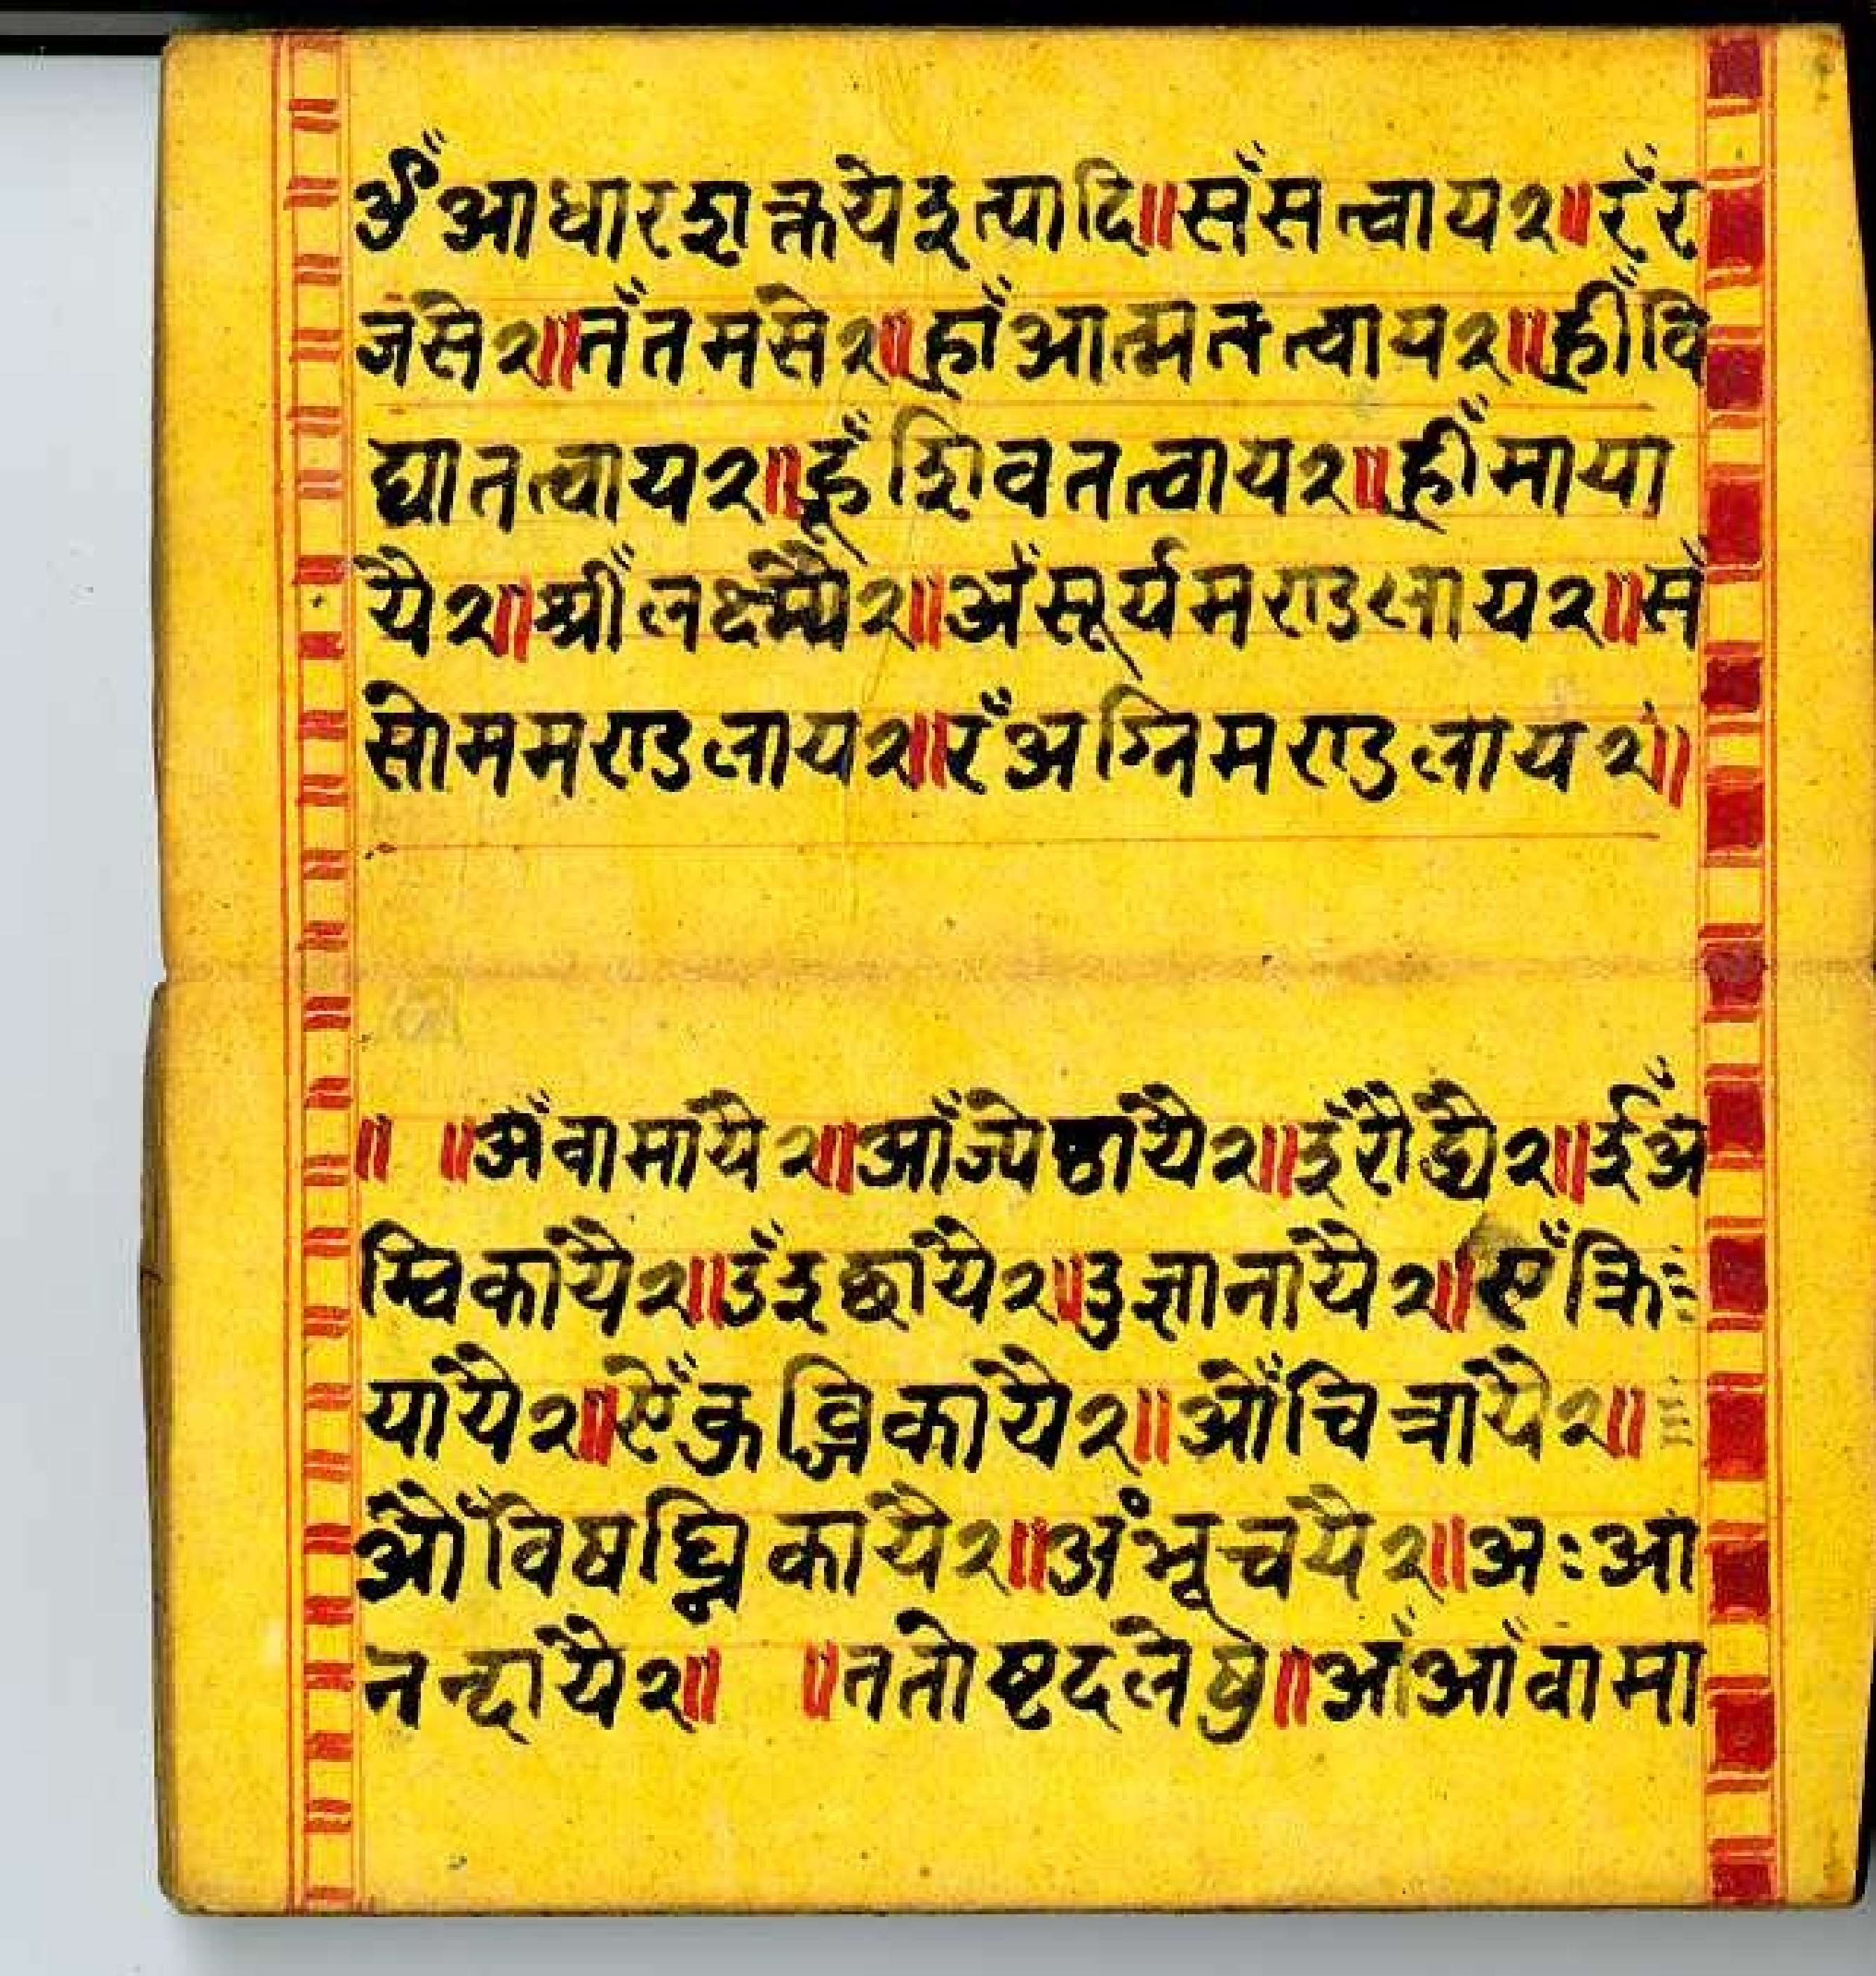 ॐ आधारशक्तये इत्यादि॥सँ सत्वाय२॥रँ र
जसे२॥तँ तमसे२॥ह्राँ आत्मतत्वाय२॥ह्रीँ वि
द्यातत्वाय२॥ह्रूँ शिवतत्वाय२॥ह्रीँ माया
यै२॥श्रीँ लक्ष्म्यै२॥अँ सूर्यमण्डलाय२॥सँ
सोममण्डलाय२॥रँ अग्निमण्डलाय२॥
॥ ॥अँ वामायै२॥आँ ज्येष्ठायै२॥इँ रौद्र्यै२॥ईँ अ
म्बिकायै२॥उँ इछायै२॥उ ज्ञानायै२॥एँ क्रि
यायै२॥ऐँ कुब्जिकायै२॥ओँ चित्रायै२॥
औँ विषघ्निकायै२॥अं भूचर्यै२॥अः आ
नन्दायै२॥ ॥ततोष्टदलेषु॥आँ आँ वामा